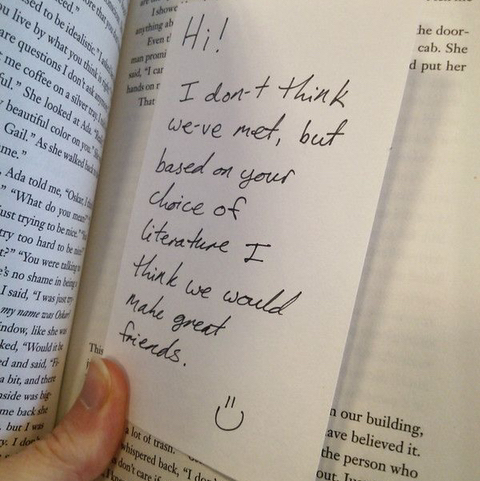 used to be idealistic." I asked
you live by what you think is right
are questions I don't ask
me coffee on a silver tray
ful." She looked at Ada.
beautiful color on you."
Gail." As she walked back
me."
, Ada told me, "Oskar, I
" "What do you mean
ust trying to be nice."
try too hard to be
t?" "You were talking
e's no shame in being
I said, "I was just
my name was Oskar
indow, like she was
ked, "Would it be
ed and said, "
a bit, and there
nside was big
me back she
. but I was
I show
anything ab
Even t
man promi
said, "I car
hands on r
That
Hi!
I don-t think
we-ve met, but
based on your
choice of
literature I
think we would
make great
friends.
the door-
cab. She
d put her
This
a lot of trash.
whispered back, "I do
don't care if
n our building,
ave believed it.
the person who
out.